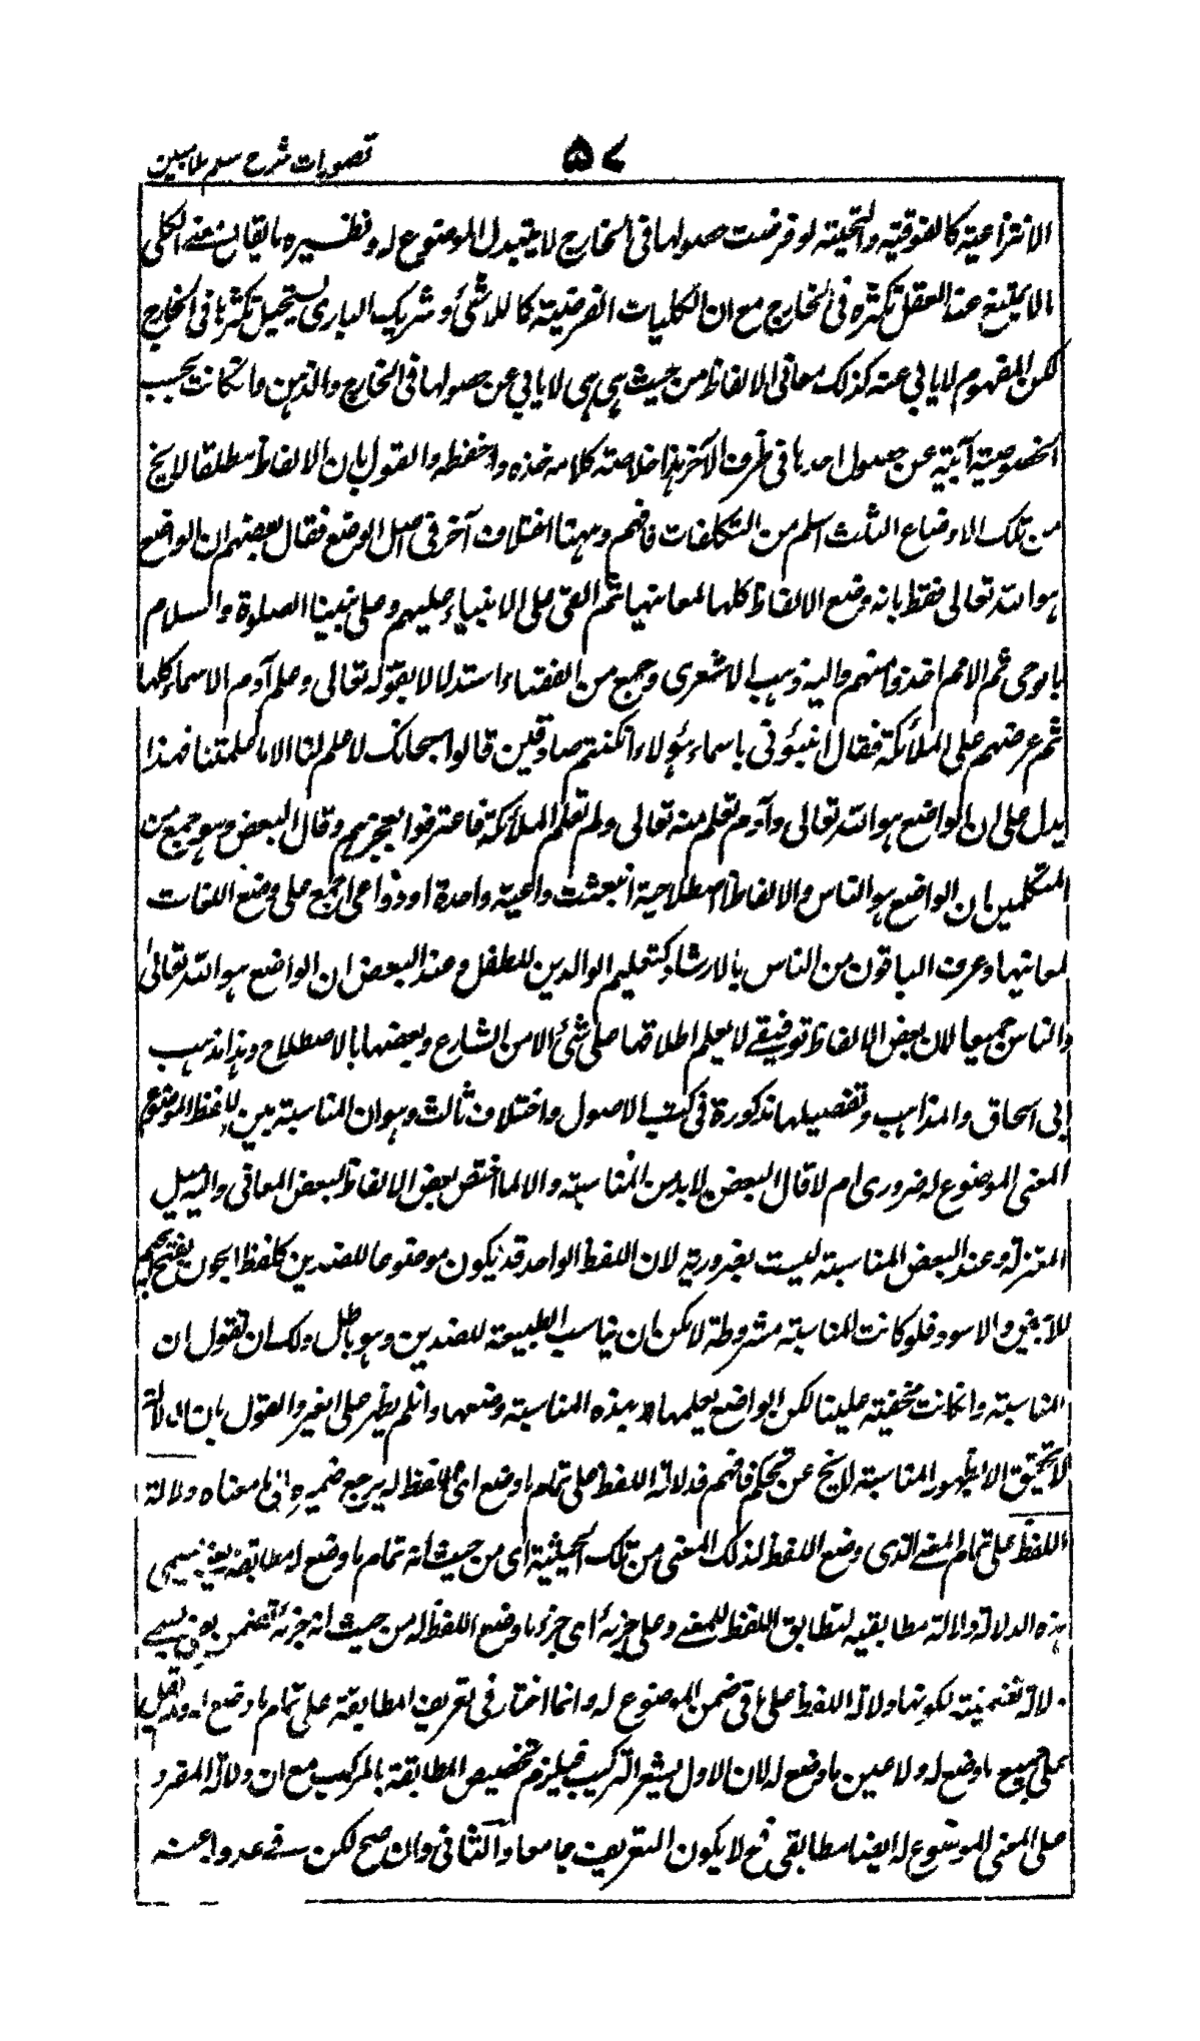 ۵۷ تصورات شرح سلم ملا مبين
الانتزاعية كالفوقية والتحتية لو فرضت حصولها في الخارج لا يتبدل الموضوع له ونظيره ما يقال في معنى الكلي
ما لا يمتنع عند العقل تكثره في الخارج مع ان الكليات الفرضية كاللاشئ وشريك الباري يستحيل تكثرها في الخارج
لكن المفهوم لا يابى عنه كذلك معاني الالفاظ من حيث هي هي لا يابى عن حصولها في الخارج والذهن وان كانت بحسب
الخصوصية آبية عن حصول احدها في ظرف الآخر هذا خلاصة كلامه خذه واحفظه والقول بان الالفاظ مطلقا لا يخ
من تلك الاوضاع الثلث اسلم من التكلفات فافهم وههنا اختلاف آخر في اصل الوضع فقال بعضهم ان الواضع
هو الله تعالى فقط بانه وضع الالفاظ كلها لمعانيها ثم القى على الانبياء عليهم وعلى نبينا الصلوة والسلام
بالوحى ثم الامم اخذوا منهم واليه ذهب الاشعرى وجمع من الفقهاء استدلالا بقوله تعالى وعلم آدم الاسماء كلها
ثم عرضهم على الملائكة فقال انبئوني باسماء هؤلاء ان كنتم صادقين قالوا سبحانك لا علم لنا الا ما علمتنا فهذا
يدل على ان الواضع هو الله تعالى وآدم تعلم منه تعالى ولم تعلم الملائكة فاعترفوا بعجزهم وقال البعض وهو جمع من
المتكلمين ان الواضع هو الناس والالفاظ اصطلاحية انبعثت داعية واحدة او دواعى الجمع على وضع اللغات
لمعانيها وعرف الباقون من الناس بالارشاد كتعليم الوالدين للطفل وعند البعض ان الواضع هو الله تعالى
والناس جميعا لان بعض الالفاظ توقيفى لا يعلم اطلاقها على شئ الا من الشارع وبعضها بالاصطلاح وهذا مذهب
ابي اسحاق والمذاهب وتفصيلها مذكورة في كتب الاصول واختلاف ثالث وهو ان المناسبة بين اللفظ الموضوع
المعنى الموضوع له ضرورى ام لا قال البعض لا بد من المناسبة والا لما اختص بعض الالفاظ لبعض المعاني واليه ميل
المعتزلة وعند البعض المناسبة ليست بضرورية لان اللفظ الواحد قد يكون موضوعا للضدين كلفظ الجون بفتح الجيم
للابيض والاسود فلو كانت المناسبة مشروطة لا يمكن ان يناسب الطبيعة للضدين وهو باطل ولك ان تقول ان
المناسبة وان كانت مخفية علينا لكن الواضع يعلمها وبهذه المناسبة وضعها وان لم يظهر على الغير والقول بان الدلالة
لا تتحقق الا بظهور المناسبة لا يخ عن تحكم فافهم فدلالة اللفظ على تمام ما وضع اى اللفظ له يرجع ضميره الى ما معناه ودلالة
اللفظ على تمام المعنى الذى وضع اللفظ لذلك المعنى من تلك الحيثية اى من حيث انه تمام ما وضع له مطابقة يعني يسمى
هذه الدلالة دلالة مطابقية لتطابق اللفظ للمعنى وعلى جزئه اى جزء ما وضع اللفظ له من حيث انه جزئه تضمن يعني يسمى
دلالة تضمنية لكونها دلالة اللفظ على ما في ضمن الموضوع له وانما اختار في تعريف المطابقة على تمام ما وضع له ولم يقل
على جميع ما وضع له ولا عين ما وضع له لان الاول يشعر التركيب فيلزم تخصيص المطابقة بالمركب مع ان دلالة المفرد
على المعنى الموضوع له ايضا مطابقى فح لا يكون التعريف جامعا والثاني وان صح لكن في عدوله عنه